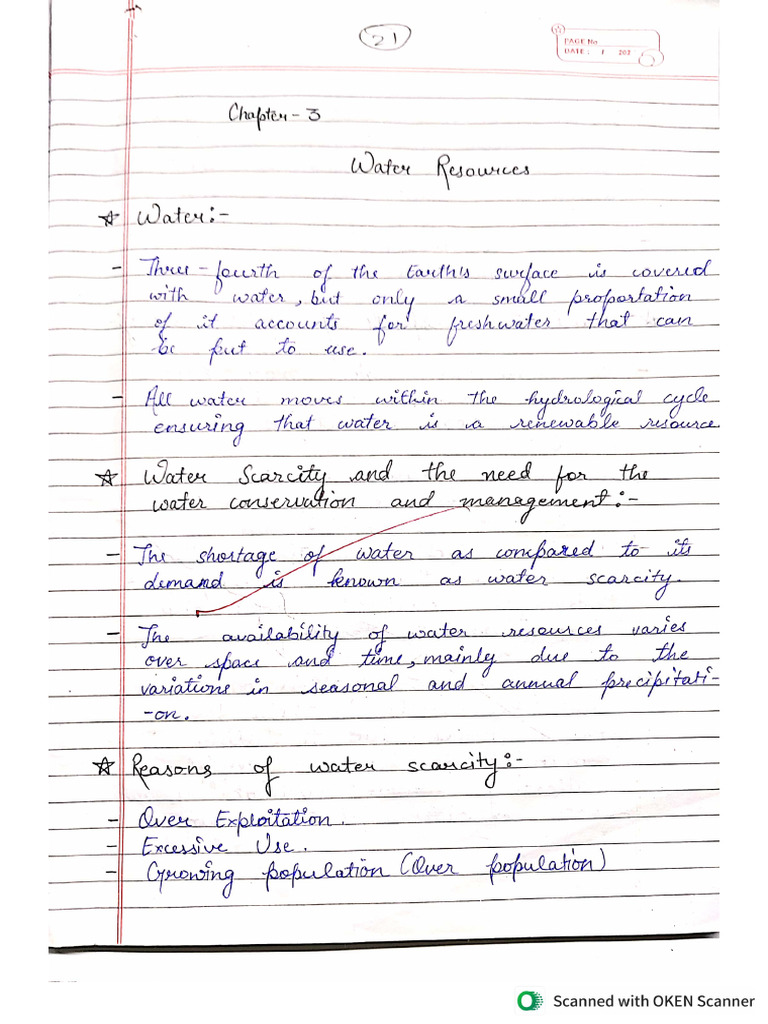 21
PAGE No
DATE : / 202
Chapter - 3
Water Resources
☆ Water:-
- Three-fourth of the Earth's surface is covered
with water, but only a small proportation
of it accounts for freshwater that can
be put to use.
- All water moves within the hydrological cycle
ensuring that water is a renewable resource
☆ Water Scarcity and the need for the
water conservation and management:-
- The shortage of water as compared to its
demand is known as water scarcity.
- The availability of water resources varies
over space and time, mainly due to the
variations in seasonal and annual precipitati-
-on.
☆ Reasons of water scarcity:-
- Over Exploitation.
- Excessive Use.
- Growing population (Over population)
Scanned with OKEN Scanner